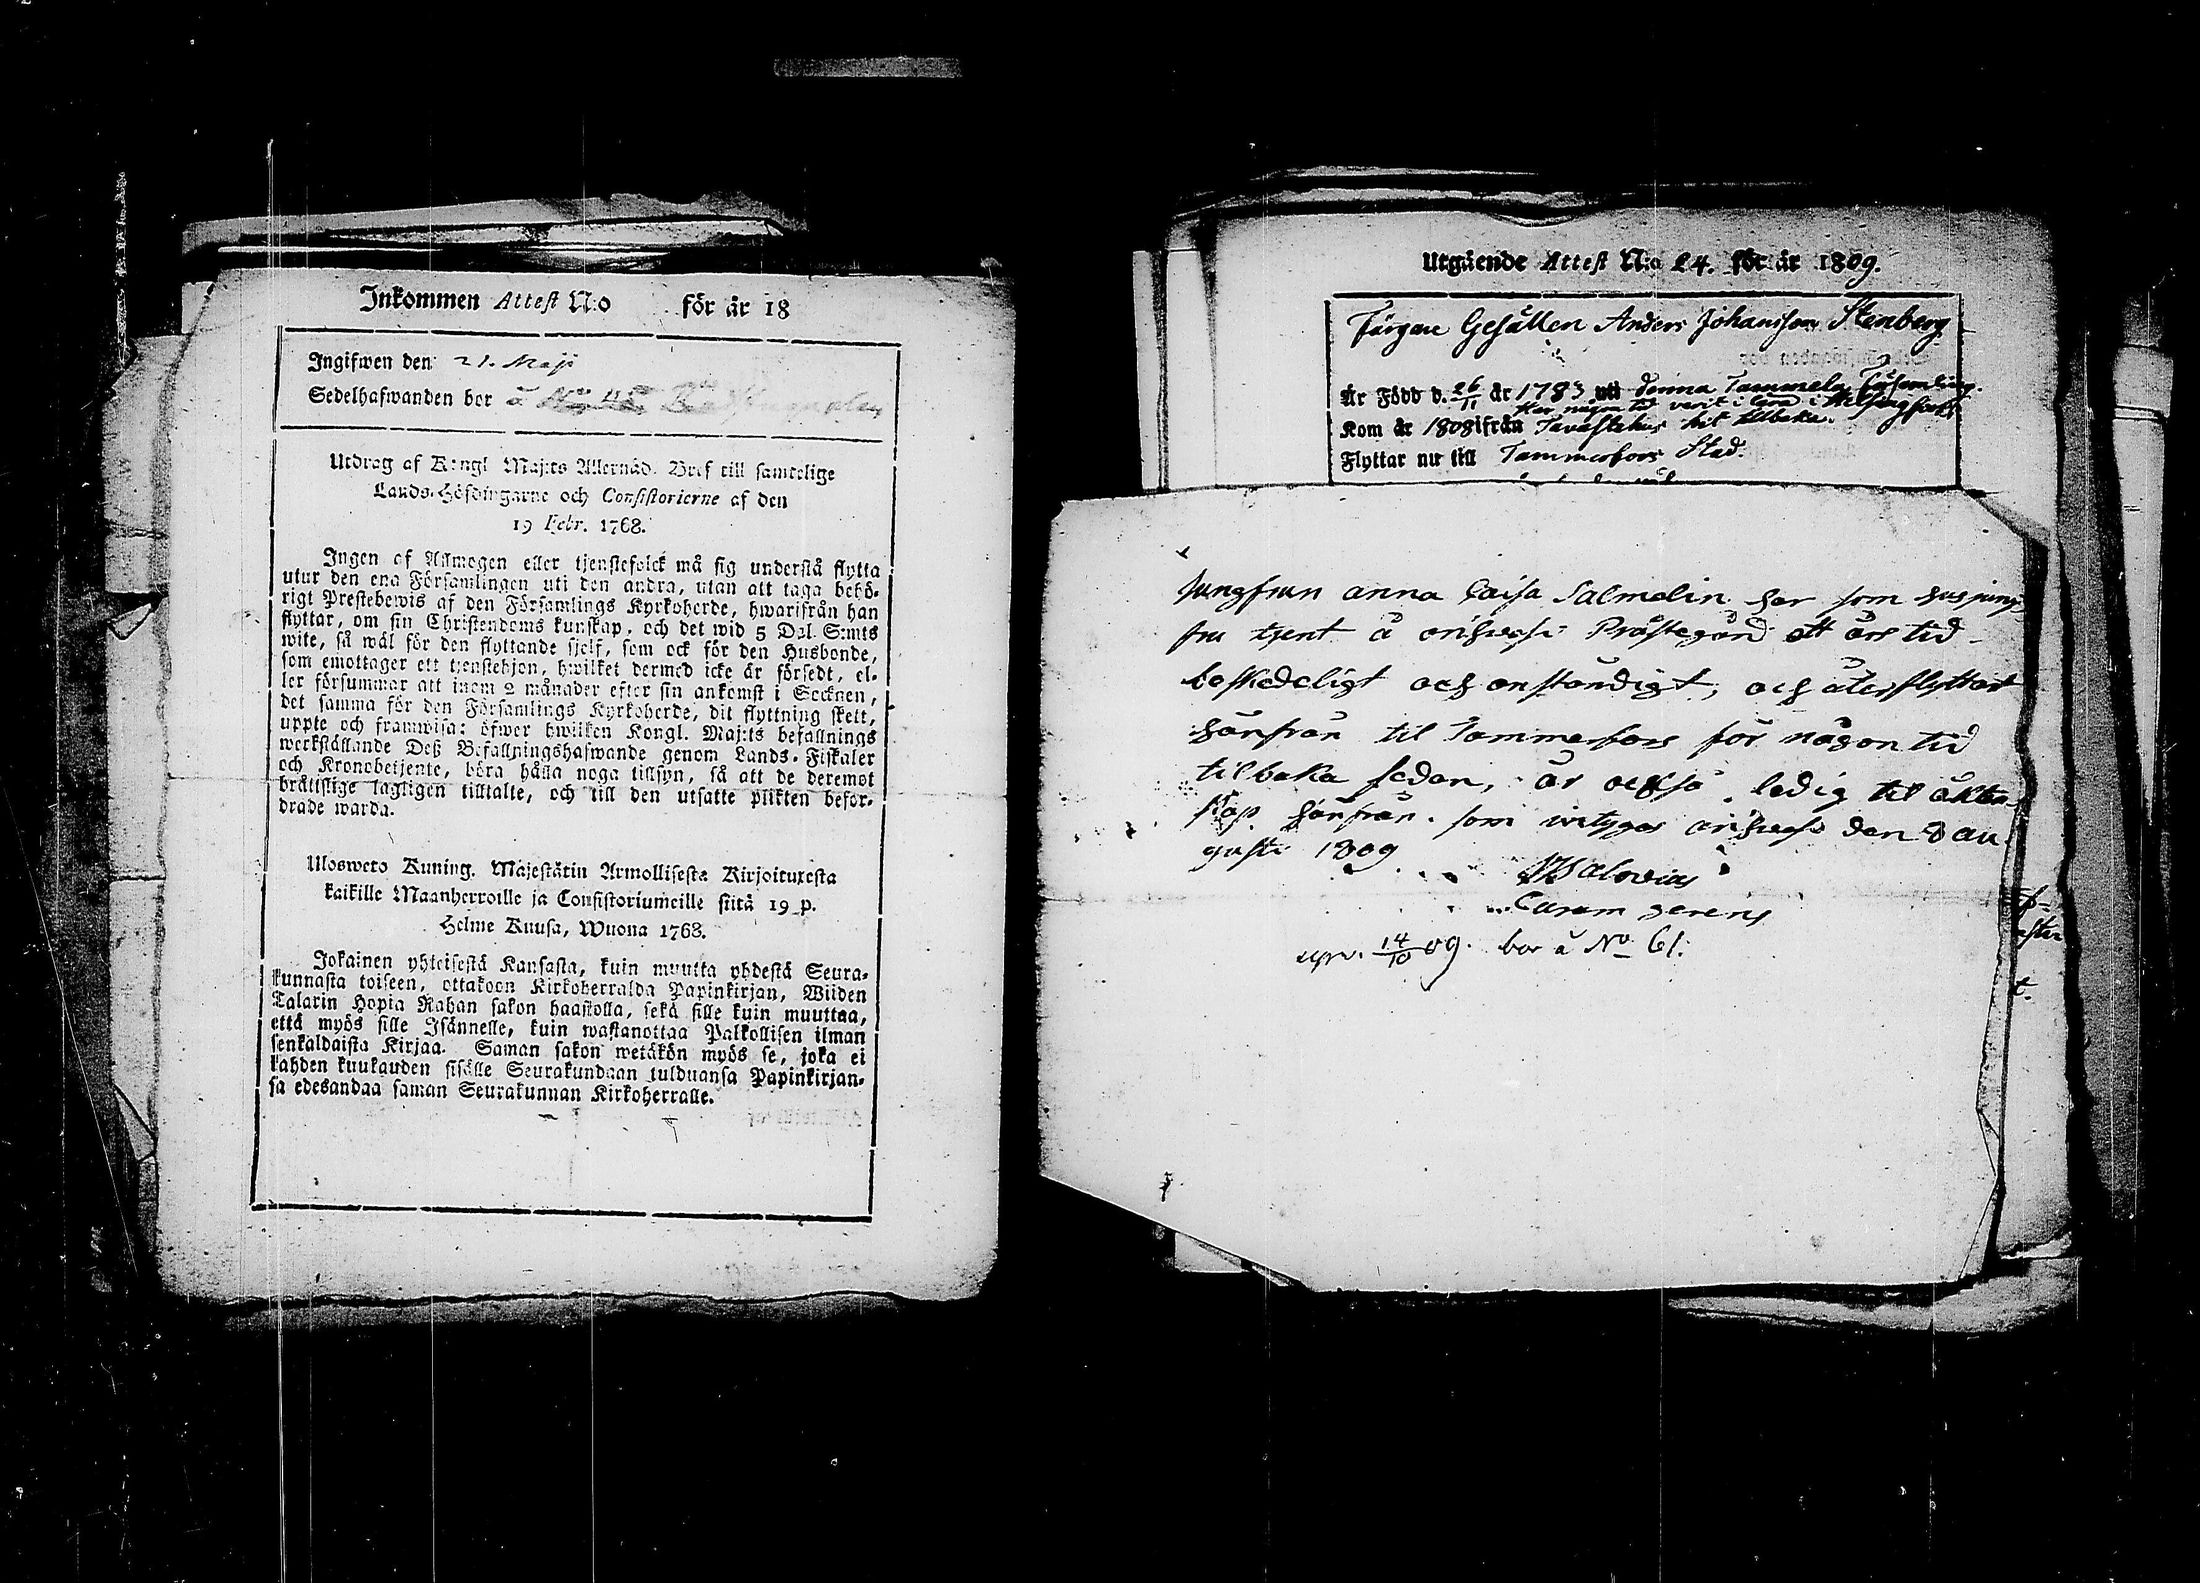 Inkommen Attest N:o för år 18
Ingifwen den 21. Maji
Sedelhafwanden bor å N:o
Utdrag af Kongl. Maj:ts Allernåd. Bref till samtelige
Lands-Höfdingarne och Consistorierne af den
19 Febr. 1768.
Ingen af Allmogen eller tjenstefolck må sig understå flytta
utur den ena Församlingen uti den andra, utan att taga behö-
rigt Prestebewis af den Församlings Kyrkoherde, hwarifrån han
flyttar, om sin Christendoms kunskap, och det wid 5 Dal. S:mts
wite, så wäl för den flyttande sjelf, som ock för den Husbonde,
som emottager ett tjenstehjon, hwilket dermed icke är försedt, el-
ler försummar att inom 2 månader efter sin ankomst i Socknen,
det samma för den Församlings Kyrkoherde, dit flyttning skett,
uppte och framwisa: öfwer hwilken Kongl. Maj:ts befallnings
werkställande Deß Befallningshafwande genom Lands-Fiskaler
och Kronobetjente, böra hålla noga tillsyn, så att de deremot
bråttslige lagligen tilltalte, och till den utsatte plikten befor-
drade warda.
Ulosweto Kuning. Majestätin Armollisesta Kirjoituxesta
kaikille Maanherroille ja Consistoriumeille siitä 19 p.
Helme Kuusa, Wuona 1768.
Jokainen yhteisestä Kansasta, kuin muutta yhdestä Seura-
kunnasta toiseen, ottakoon Kirkoherralda Papinkirjan, Wiiden
Talarin Hopia Rahan sakon haastolla, sekä sille kuin muuttaa,
että myös sille Isännelle, kuin wastanottaa Palkollisen ilman
senkaldaista Kirjaa. Saman sakon wetäkön myös se, joka ei
kahden kuukauden sisälle Seurakundaan tulduansa Papinkirjan-
sa edesandaa saman Seurakunnan Kirkoherralle.
Utgående Attest N:o 24. för år 1809.
Färgare Gesällen Anders Johansson Stenberg
Är Född d. 26/11 år 1783 uti denna Tammela Församling.
Har någon tid varit i lära i Helsingfors
Kom år 1808 ifrån Tavastehus hit tillbaka.
Flyttar nu till Tammerfors Stad.
Jungfrun anna Caisa Salmelin har som husjung-
fru tjent å orihvesi Prästegård ett års tid
beskedeligt och anständigt, och återflyttar
härifrån til Tammerfors för någon tid
tilbaka sedan, är också ledig til äkten-
skap härifrån. som witygas orihvesi den 8 au
gusti 1809
Walovius
Curam gerens
upv. 14/10 09. bor å No 61.